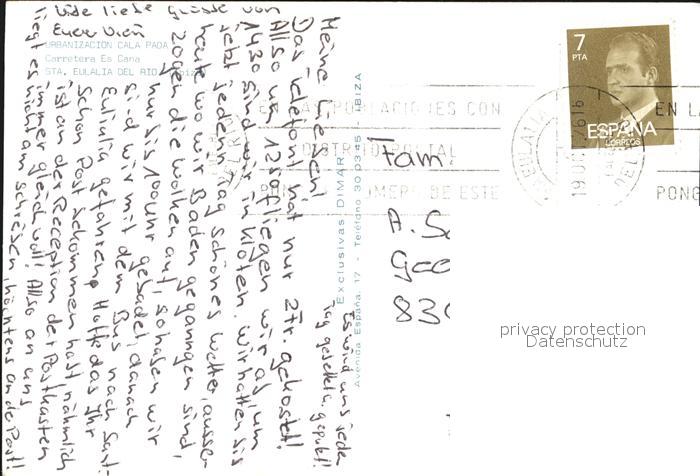 Meine Lieben!
Das Telefont hat nur 2Fr. gekostet!
Also um 1250 fliegen wir ab, um
1430 sind wir in Kloten. Wir hatten bis
jetzt jeden Tag schönes Wetter, ausser
heute wo wir Baden gegangen sind,
zogen die Wolken auf, so hasen wir
nur bis 100uhr gebadet, danach
sind wir mit dem Bus nach Sant-
Eulilia gefahren, Hoffe das Ihr
schon Post bekommen hast nämlich
ist an der Reception der Postkasten
immer gleich voll! Also an uns
liegt es nicht am schreiben höchtens an de Post!
Viele liebe grüsse von
Euer
Es wird uns jeden
Tag gebettet, geputzt!
URBANIZACIÓN CALA PADA
Carretera Es Cana
STA. EULALIA DEL RIO
Exclusivas DIMAR
Avenida España, 17 - Teléfono 30 03 45 - IBIZA
Fam.
A. S
Gee
830
7
PTA
ESPAÑA
CORREOS
EN LAS POBLACIONES CON
DISTRITO POSTAL
NUMERO DE ESTE
EN LA
PONG
EULALIA
privacy protection
Datenschutz